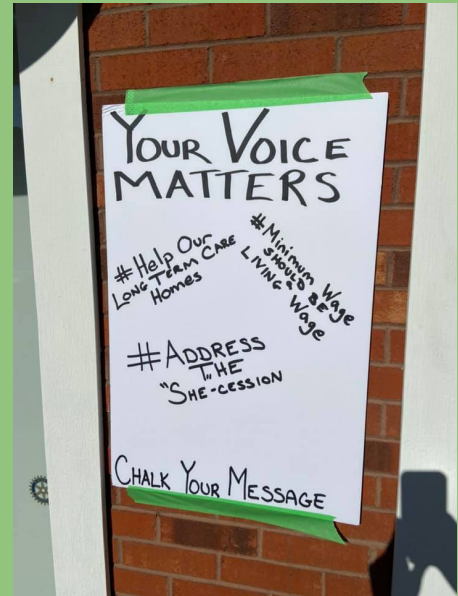 YOUR VOICE
MATTERS
#Help Our
LONG TERM CARE
Homes
#Minimum Wage
SHOULD BE a
LIVING Wage
#ADDRESS
THE
"SHE-CESSION
CHALK YOUR MESSAGE